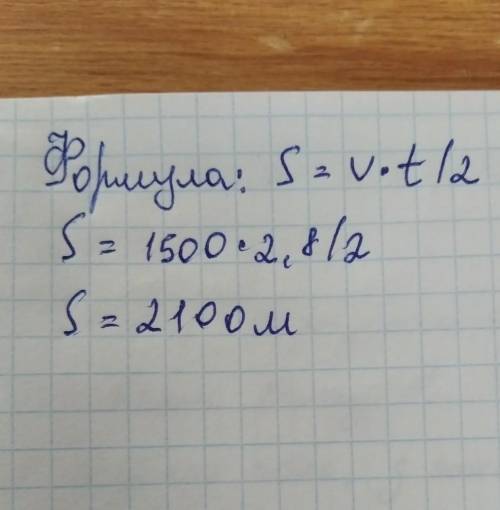 Формула: S = v·t/2
S = 1500·2,8/2
S = 2100м